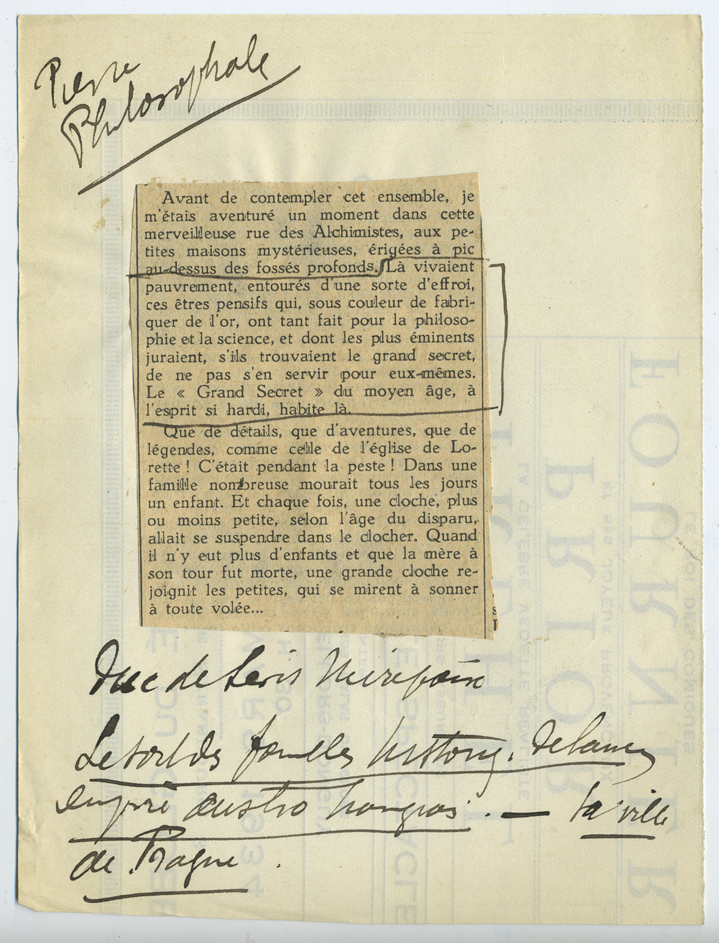 Pierre
Philosophale
Avant de contempler cet ensemble, je
m'étais aventuré un moment dans cette
merveilleuse rue des Alchimistes, aux pe-
tites maisons mystérieuses, érigées à pic
au-dessus des fossés profonds. Là vivaient
pauvrement, entourés d'une sorte d'effroi,
ces êtres pensifs qui, sous couleur de fabri-
quer de l'or, ont tant fait pour la philoso-
phie et la science, et dont les plus éminents
juraient, s'ils trouvaient le grand secret,
de ne pas s'en servir pour eux-mêmes.
Le « Grand Secret » du moyen âge, à
l'esprit si hardi, habite là.
Que de détails, que d'aventures, que de
légendes, comme celle de l'église de Lo-
rette ! C'était pendant la peste ! Dans une
famille nombreuse mourait tous les jours
un enfant. Et chaque fois, une cloche, plus
ou moins petite, selon l'âge du disparu,
allait se suspendre dans le clocher. Quand
il n'y eut plus d'enfants et que la mère à
son tour fut morte, une grande cloche re-
joignit les petites, qui se mirent à sonner
à toute volée...
Duc de Levis Mirepoix
Le sort des familles de l'ancien
empire austro hongrois. — La ville
de Prague.